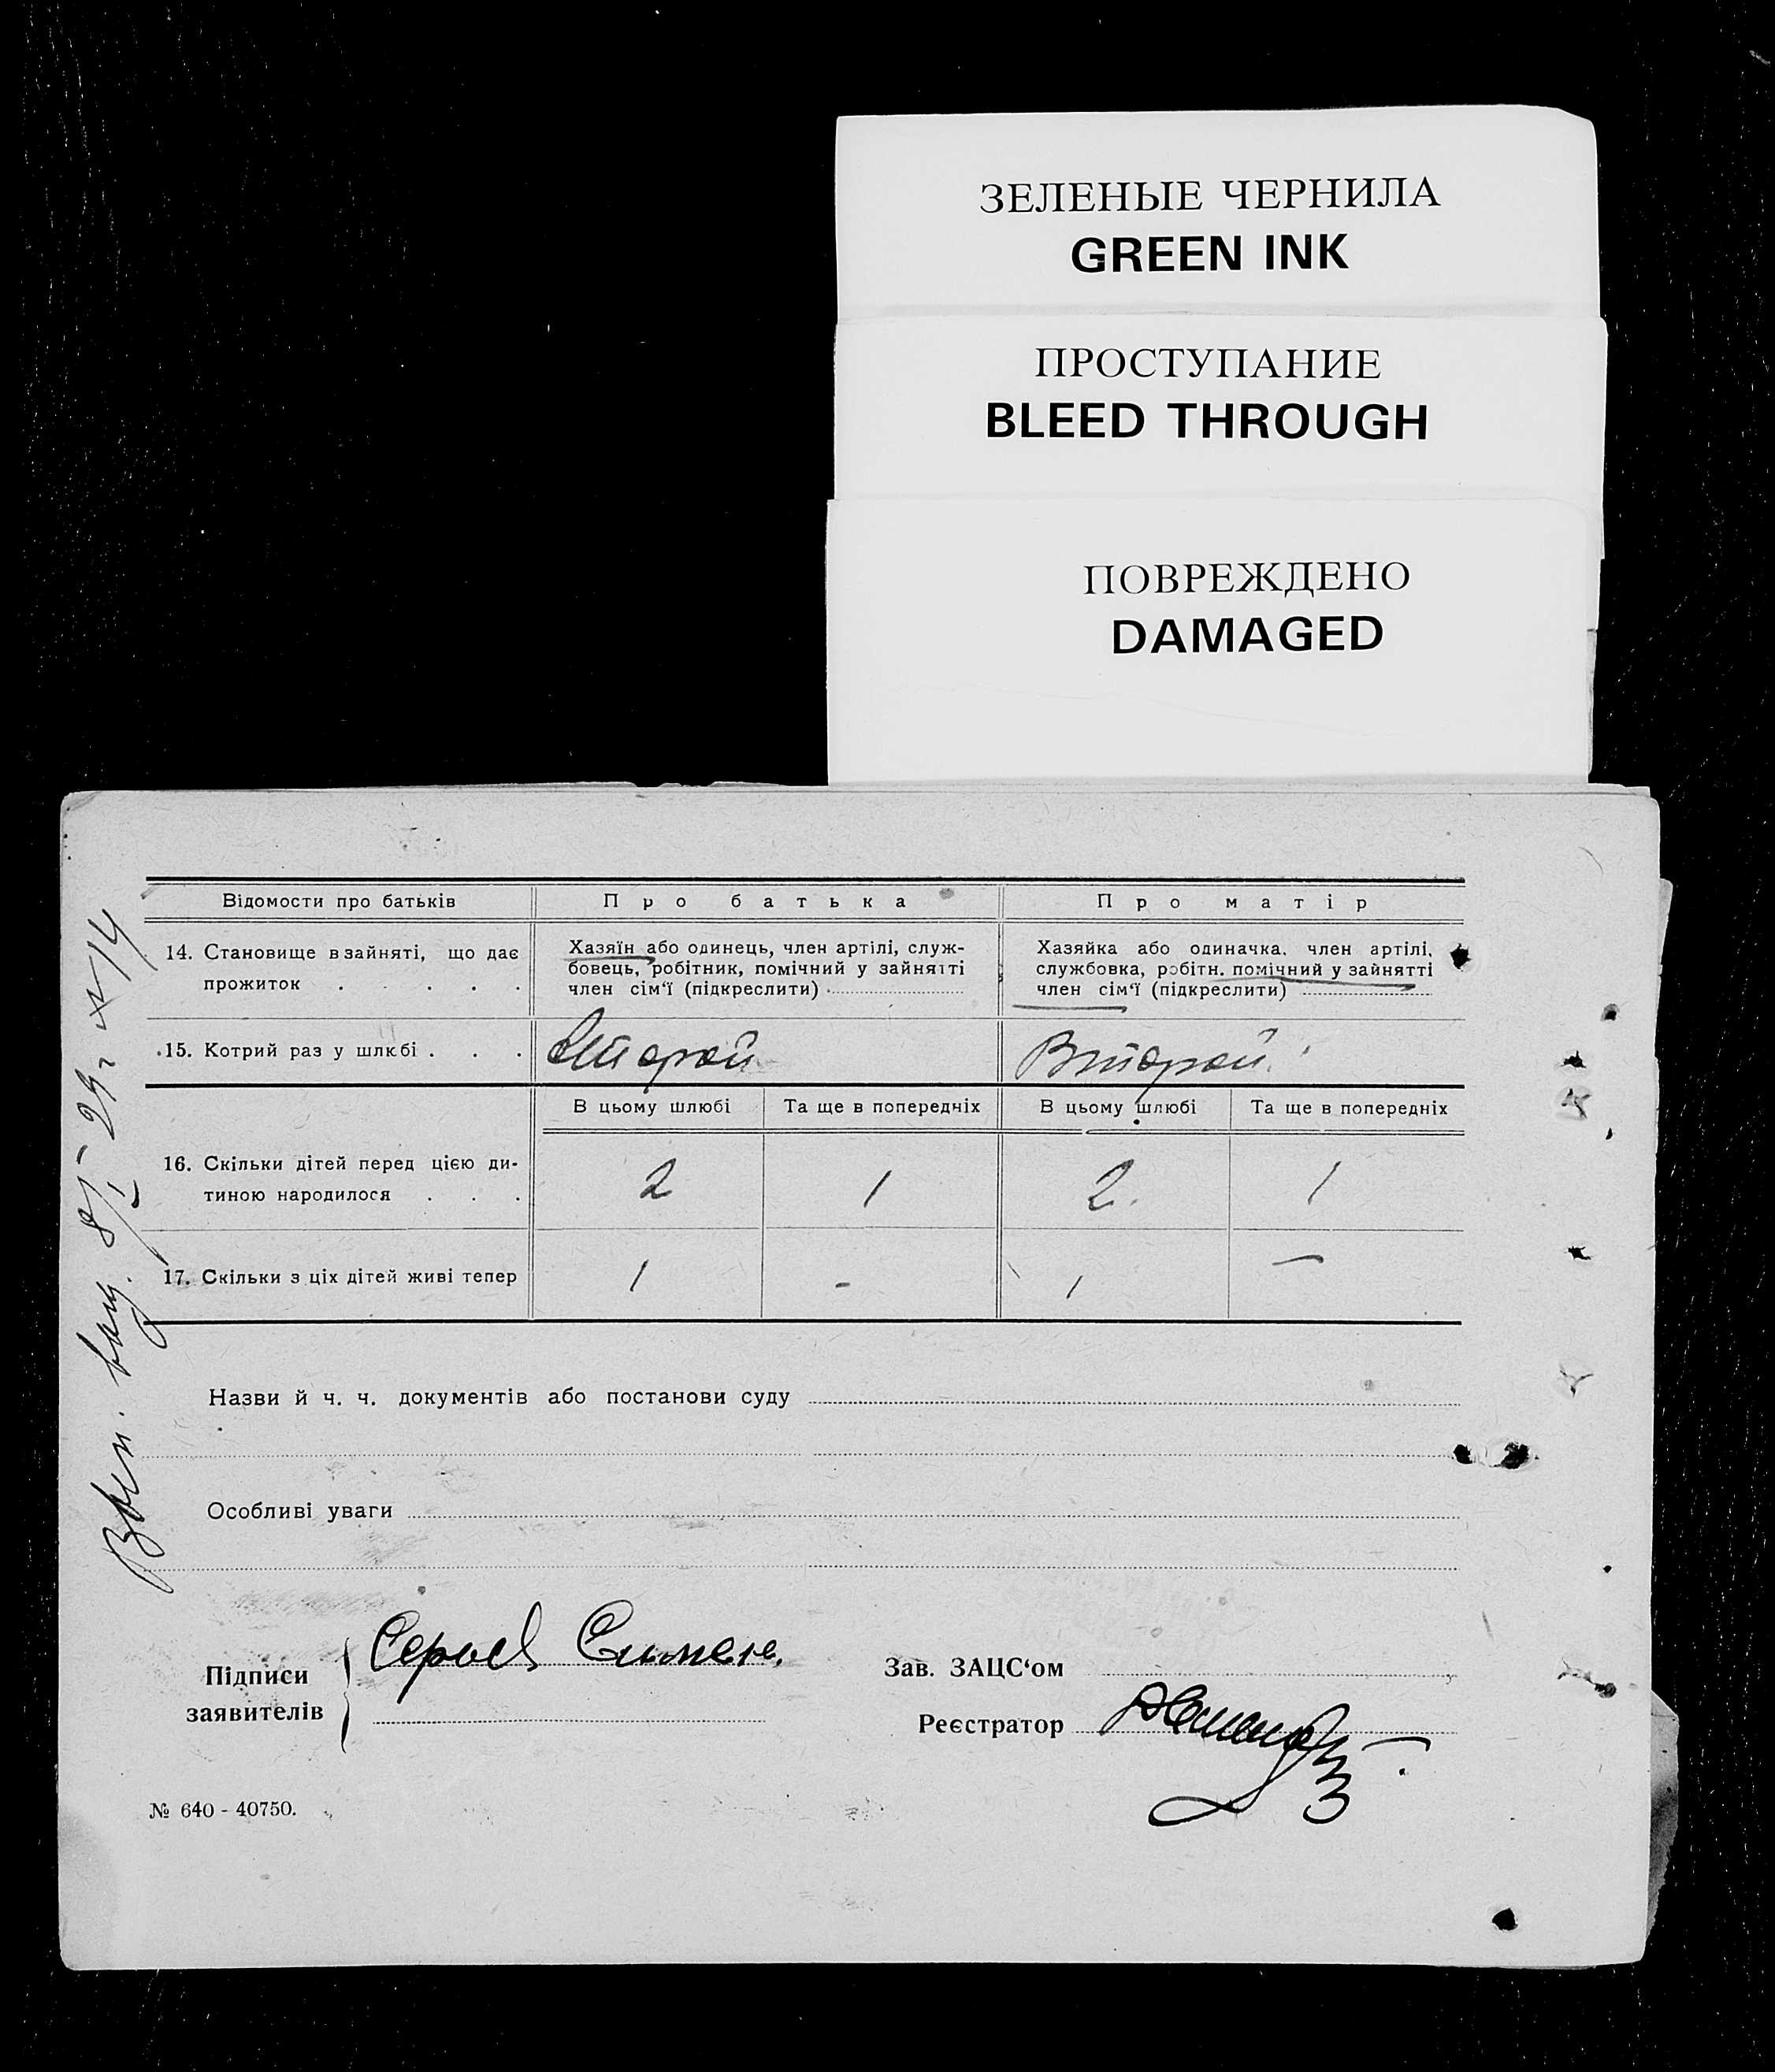 ЗЕЛЕНЫЕ ЧЕРНИЛА
GREEN INK
ПРОСТУПАНИЕ
BLEED THROUGH
ПОВРЕЖДЕНО
DAMAGED
Відомости про батьків
Про батька
Про матір
14. Становище в зайняті, що дає
прожиток . . . . .
Хазяїн або одинець, член артілі, служ-
бовець, робітник, помічний у зайнятті
член сім‘ї (підкреслити)
Хазяйка або одиначка, член артілі,
службовка, робітн. помічний у зайнятті
член сім‘ї (підкреслити)
15. Котрий раз у шлюбі . . .
Второй
Второй
В цьому шлюбі
Та ще в попередніх
В цьому шлюбі
Та ще в попередніх
16. Скільки дітей перед цією ди-
тиною народилося . . .
2
1
2.
1
17. Скільки з ціх дітей живі тепер
1
-
1
—
Назви й ч. ч. документів або постанови суду
Особливі уваги
Підписи
заявителів
Зав. ЗАЦС‘ом
Реєстратор
№ 640 - 40750.